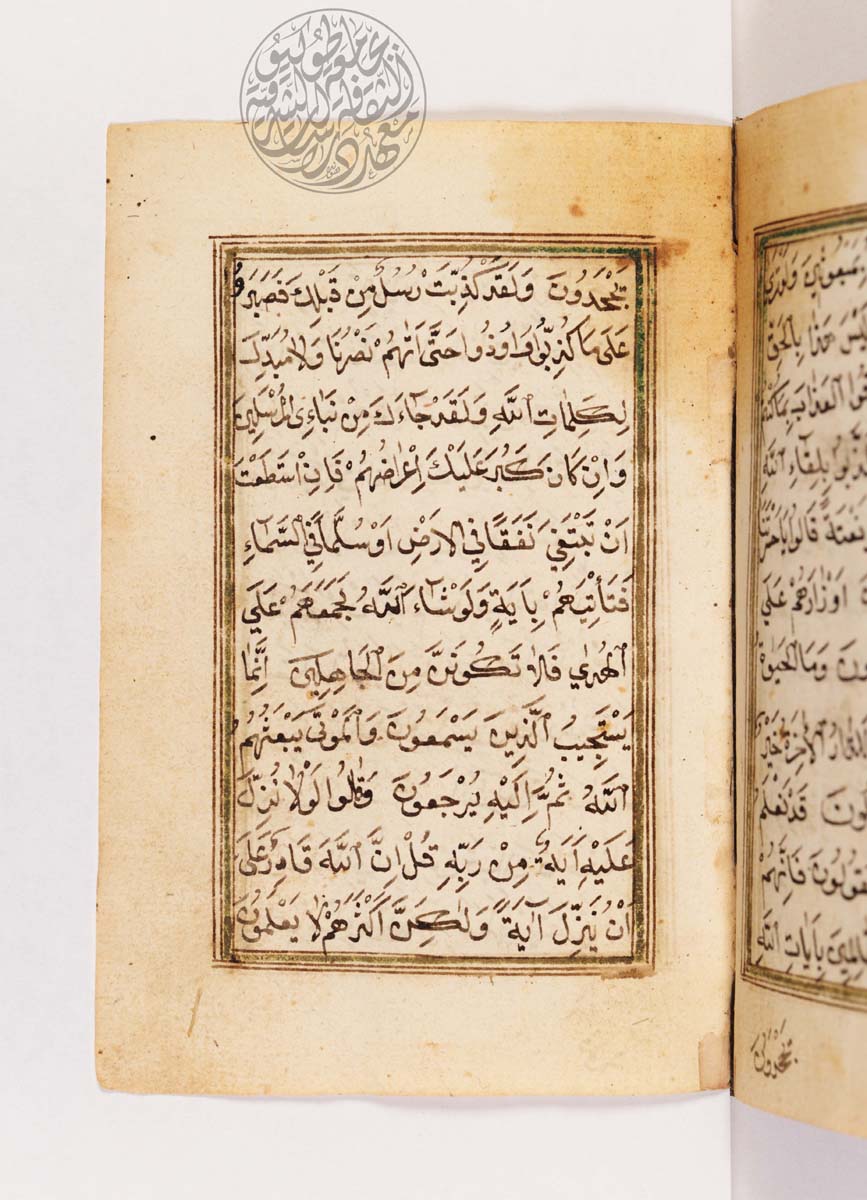 يَجْحَدُونَ وَلَقَدْ كُذِّبَتْ رُسُلٌ مِنْ قَبْلِكَ فَصَبَرُوا
عَلَى مَا كُذِّبُوا وَاُوذُوا حَتَّى اَتٰهُمْ نَصْرُنَا وَلَا مُبَدِّلَ
لِكَلِمَاتِ اللَّهِ وَلَقَدْ جَاءَكَ مِنْ نَبَاءِى الْمُرْسَلِينَ
وَاِنْ كَانَ كَبُرَ عَلَيْكَ اِعْرَاضُهُمْ فَاِنِ اسْتَطَعْتَ
اَنْ تَبْتَغِيَ نَفَقًا فِي الْاَرْضِ اَوْ سُلَّمًا فِي السَّمَاءِ
فَتَأْتِيَهُمْ بِاَيَةٍ وَلَوْ شَاءَ اللَّهُ لَجَمَعَهُمْ عَلَي
الْهُدٰي فَلَا تَكُونَنَّ مِنَ الْجَاهِلِينَ اِنَّمَا
يَسْتَجِيبُ الَّذِينَ يَسْمَعُونَ وَالْمَوْتَى يَبْعَثُهُمُ
اللَّهُ ثُمَّ اِلَيْهِ يُرْجَعُونَ وَقَالُوا لَوْلَا نُزِّلَ
عَلَيْهِ اَيَةٌ مِنْ رَبِّهِ قُلْ اِنَّ اللَّهَ قَادِرٌ عَلَى
اَنْ يُنَزِّلَ آيَةً وَلٰكِنَّ اَكْثَرَهُمْ لَا يَعْلَمُونَ
وَلَوْ تَرَى
بِالْحَقِّ
الْعَذَابَ بِمَا
بِلِقَاءِ اللَّهِ
بَغْتَةً قَالُوا يَا حَسْرَتَنَا
اَوْزَارَهُمْ عَلَي
وَمَا الْحَيٰوةُ
الْاٰخِرَةُ خَيْرٌ
قَدْ نَعْلَمُ
يَقُولُونَ فَاِنَّهُمْ
بِاٰيَاتِ اللَّهِ
يَجْحَدُونَ